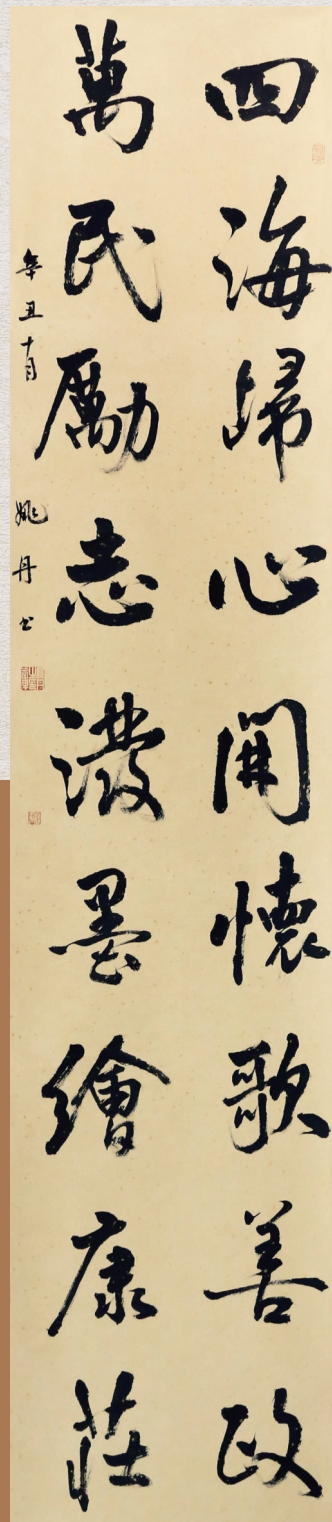 四海歸心開懷歌善政
萬民勵志潑墨繪康莊
辛丑十月 姚丹書